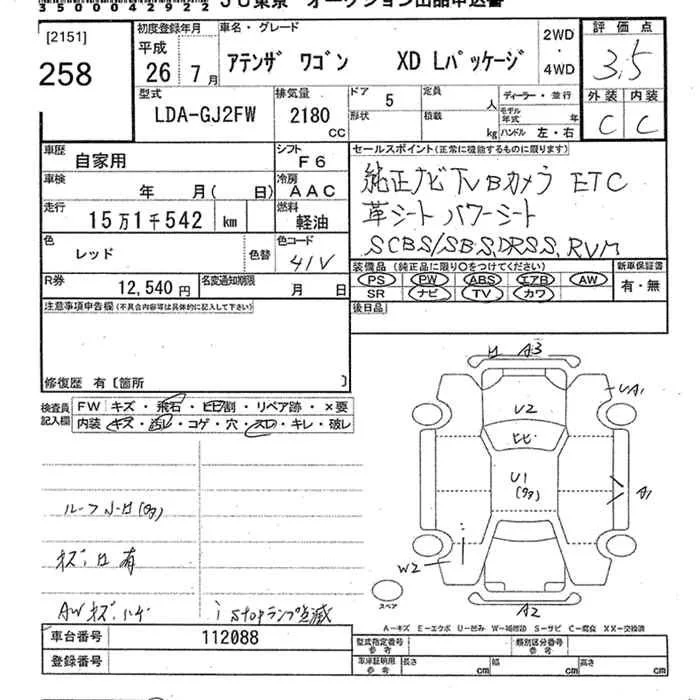 35000042922
JU東京 オークション出品申込書
[2151]
258
初度登録年月
平成
26年 7月
車名・グレード
アテンザ ワゴン XD Lパッケージ
2WD
・
4WD
評価点
3.5
外装 内装
C C
型式
LDA-GJ2FW
排気量
2180
CC
ドア 5
形状
定員 人
積載 kg
ディーラー・並行
モデル年式 年
ハンドル 左・右
車歴
自家用
シフト
F6
車検
年 月( 日)
冷房
AAC
走行
15万1千542 km
燃料
軽油
色
レッド
色替
色コード
41V
R券
12,540円
名変通知期限
月 日
セールスポイント(正常に機能するものに限ります)
純正ナビ TV Bカメラ ETC
革シート パワーシート
SCBS/SBS,DRSS,RVM
装備品 (純正品に限り○をつけてください)
新車保証書
PS PW ABS エアB AW
有・無
SR ナビ TV カワ
後日品
注意事項申告欄(不具合内容等は具体的に記入して下さい)
修復歴 有〔箇所 〕
検査員
記入欄
FW キズ・飛石・ヒビ割・リペア跡・×要
内装 キズ・汚レ・コゲ・穴・スレ・キレ・破レ
A3
UA1
U2
ヒビ
U1
A1
W2
A2
スペア
有
AWキズ
i stopランプ点滅
A-キズ E-エクボ U-凹み W-補修跡 S-サビ C-腐食 XX-交換済
車台番号 112088
登録番号
型式指定番号
参考
類別区分番号
参考
車庫証明用
参考
長さ cm
幅 cm
高さ cm